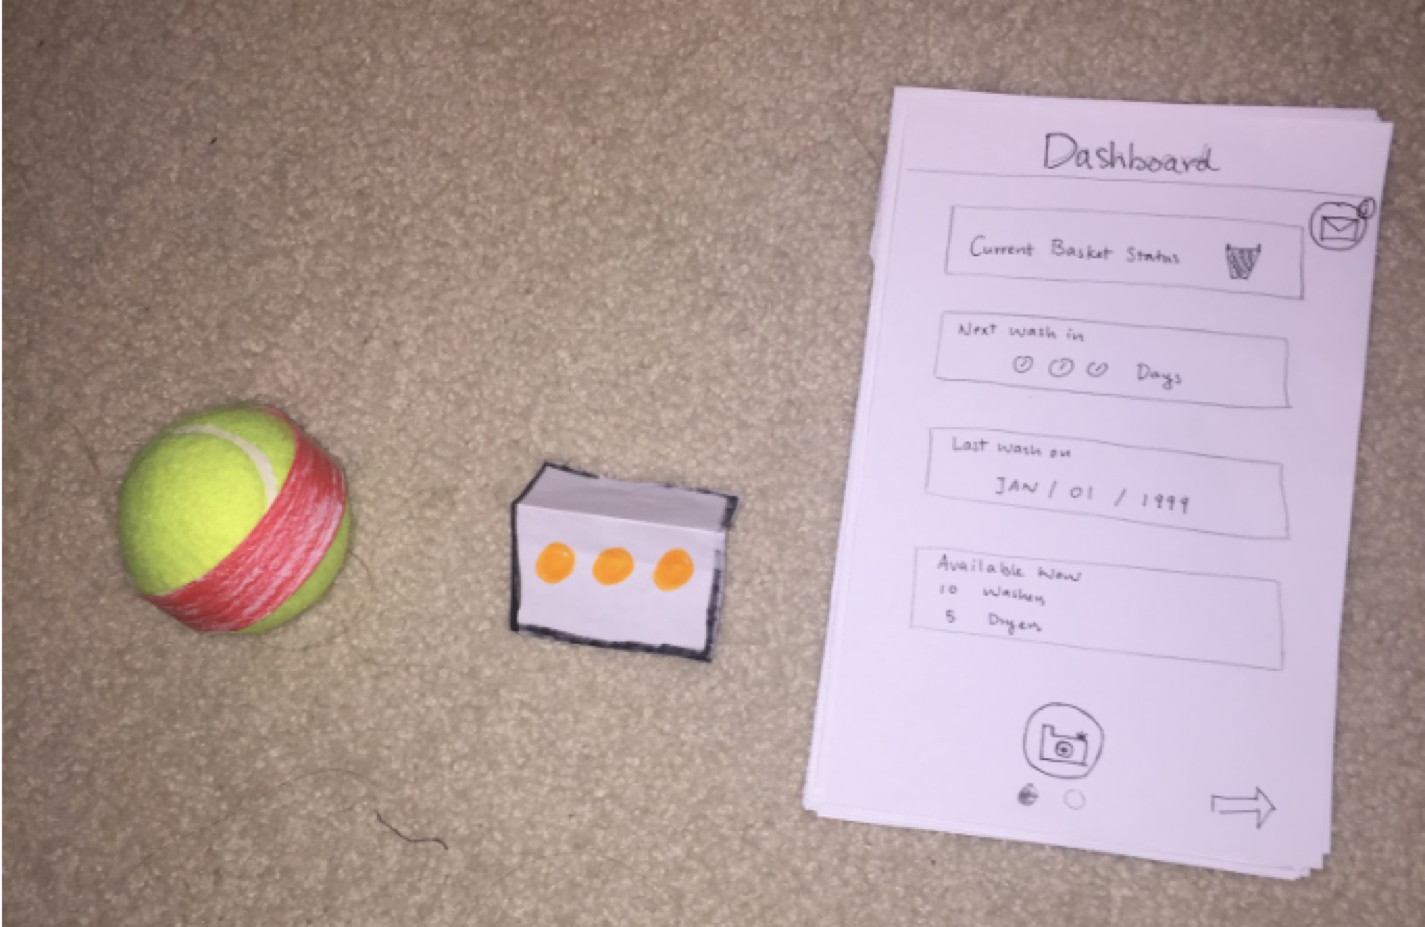 Dashboard
Current Basket Status
Next wash in
Days
Last wash on
JAN / 01 / 1999
Available Now
10 Washers
5 Dryers